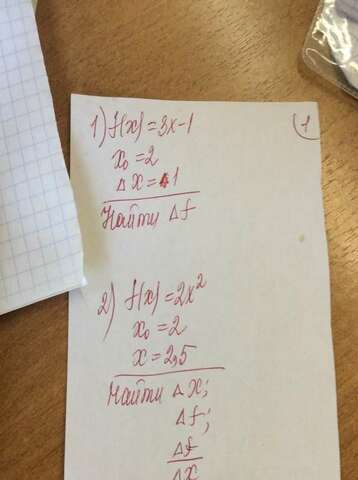 1
1) f(x) = 3x-1
x₀ = 2
Δx = 1
Найти Δf
2) f(x) = 2x²
x₀ = 2
x = 2,5
Найти Δx;
Δf;
Δf
Δx